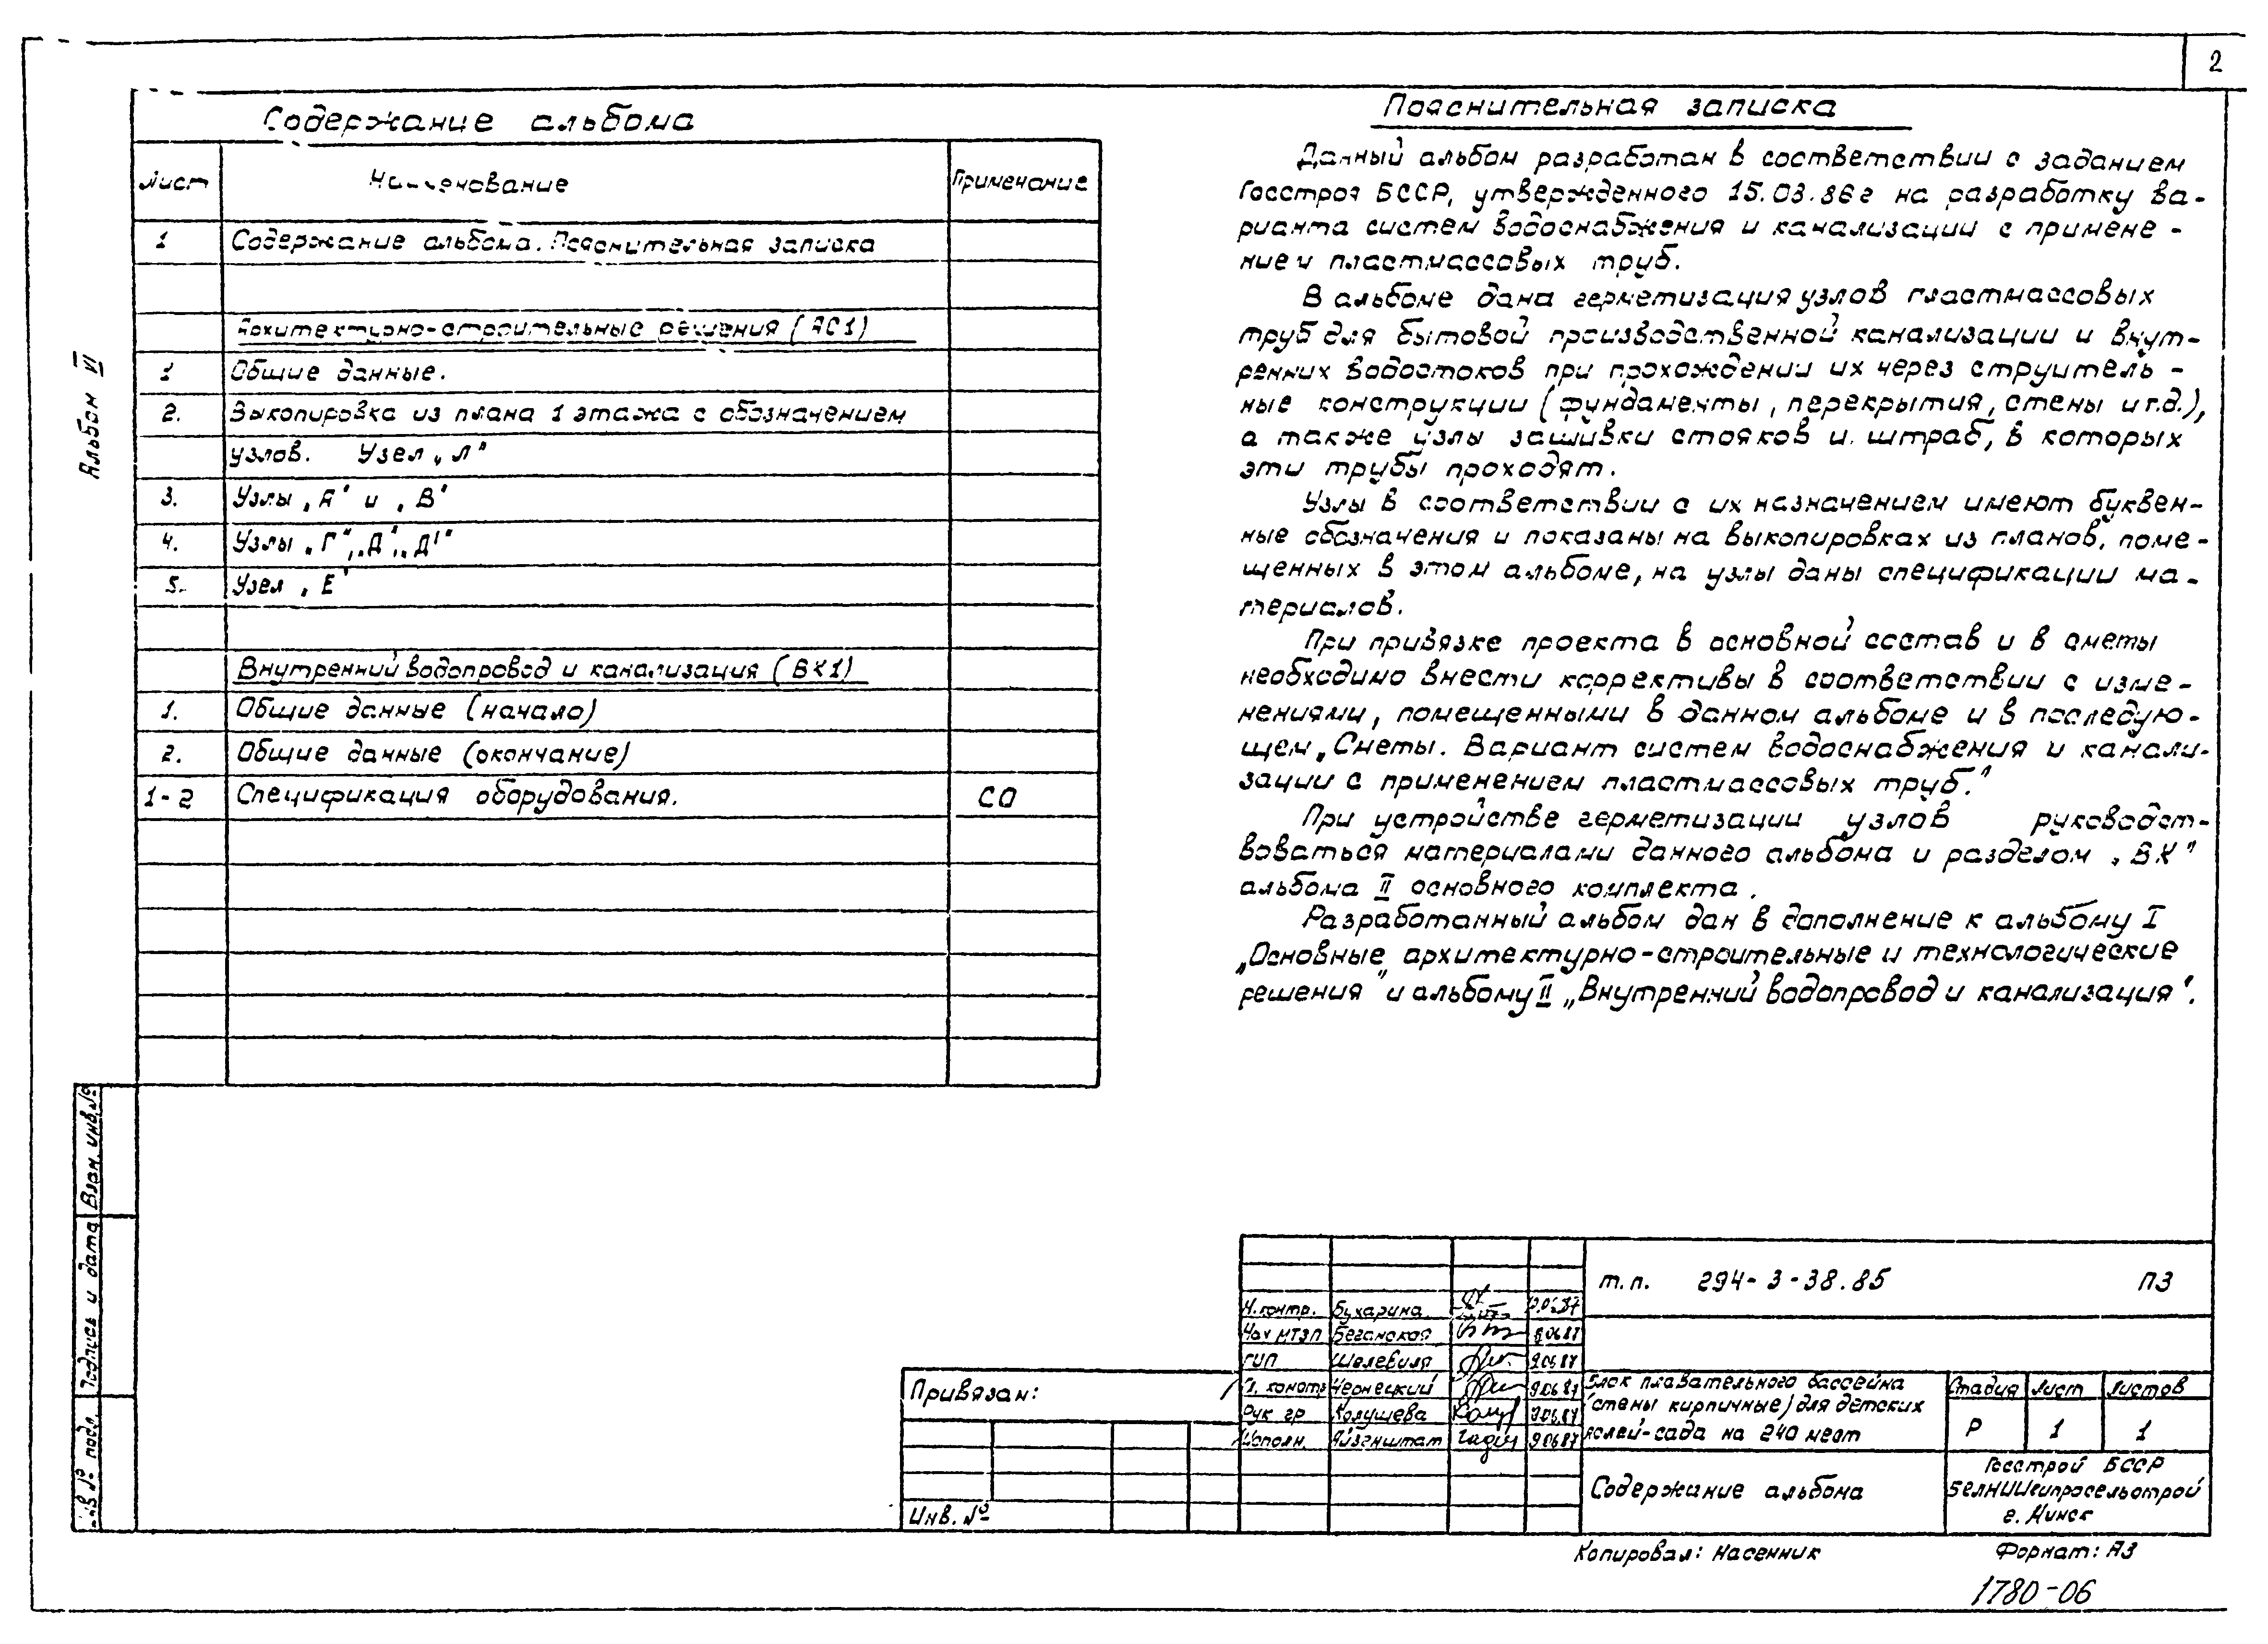 2
Альбом VI
Содержание альбома
Лист Наименование Примечание
1 Содержание альбома. Пояснительная записка
Архитектурно-строительные решения (АС1)
1 Общие данные.
2. Выкопировка из плана 1 этажа с обозначением
узлов. Узел „Л"
3. Узлы „А" и „В"
4. Узлы „Г", „Д", „Д'"
5. Узел „Е"
Внутренний водопровод и канализация (ВК1)
1. Общие данные (начало)
2. Общие данные (окончание)
1-2 Спецификация оборудования. СО
Пояснительная записка
Данный альбом разработан в соответствии с заданием
Госстроя БССР, утвержденного 15.03.86г на разработку ва-
рианта систем водоснабжения и канализации с примене-
нием пластмассовых труб.
В альбоме дана герметизация узлов пластмассовых
труб для бытовой производственной канализации и внут-
ренних водостоков при прохождении их через струитель-
ные конструкции (фундаменты, перекрытия, стены и т.д.),
а также узлы зашивки стояков и штраб, в которых
эти трубы проходят.
Узлы в соответствии с их назначением имеют буквен-
ные обозначения и показаны на выкопировках из планов, поме-
щенных в этом альбоме, на узлы даны спецификации ма-
териалов.
При привязке проекта в основной состав и в сметы
необходимо внести коррективы в соответствии с изме-
нениями, помещенными в данном альбоме и в последую-
щем „Сметы. Вариант систем водоснабжения и канали-
зации с применением пластмассовых труб."
При устройстве герметизации узлов руководст-
воваться материалами данного альбома и разделом „ВК"
альбома II основного комплекта.
Разработанный альбом дан в дополнение к альбому I
„Основные архитектурно-строительные и технологические
решения" и альбому II „Внутренний водопровод и канализация".
Взам. инв. №
Подпись и дата
Инв № подл.
Привязан:
Инв. №
Н.контр. Бухарина
Нач МТЭП Беганская 9.06.87
ГИП Шелевиля 9.06.87
Гл. констр Чернецкий 9.06.87
Рук гр Колущева 9.06.87
Исполн. Айзенштат 9.06.87
т.п. 294-3-38.85 ПЗ
Блок плавательного бассейна
(стены кирпичные) для детских
яслей-сада на 240 мест
Стадия Лист Листов
Р 1 1
Содержание альбома
Госстрой БССР
БелНИИгипросельстрой
г. Минск
Копировал: Насенник Формат: А3
1780-06